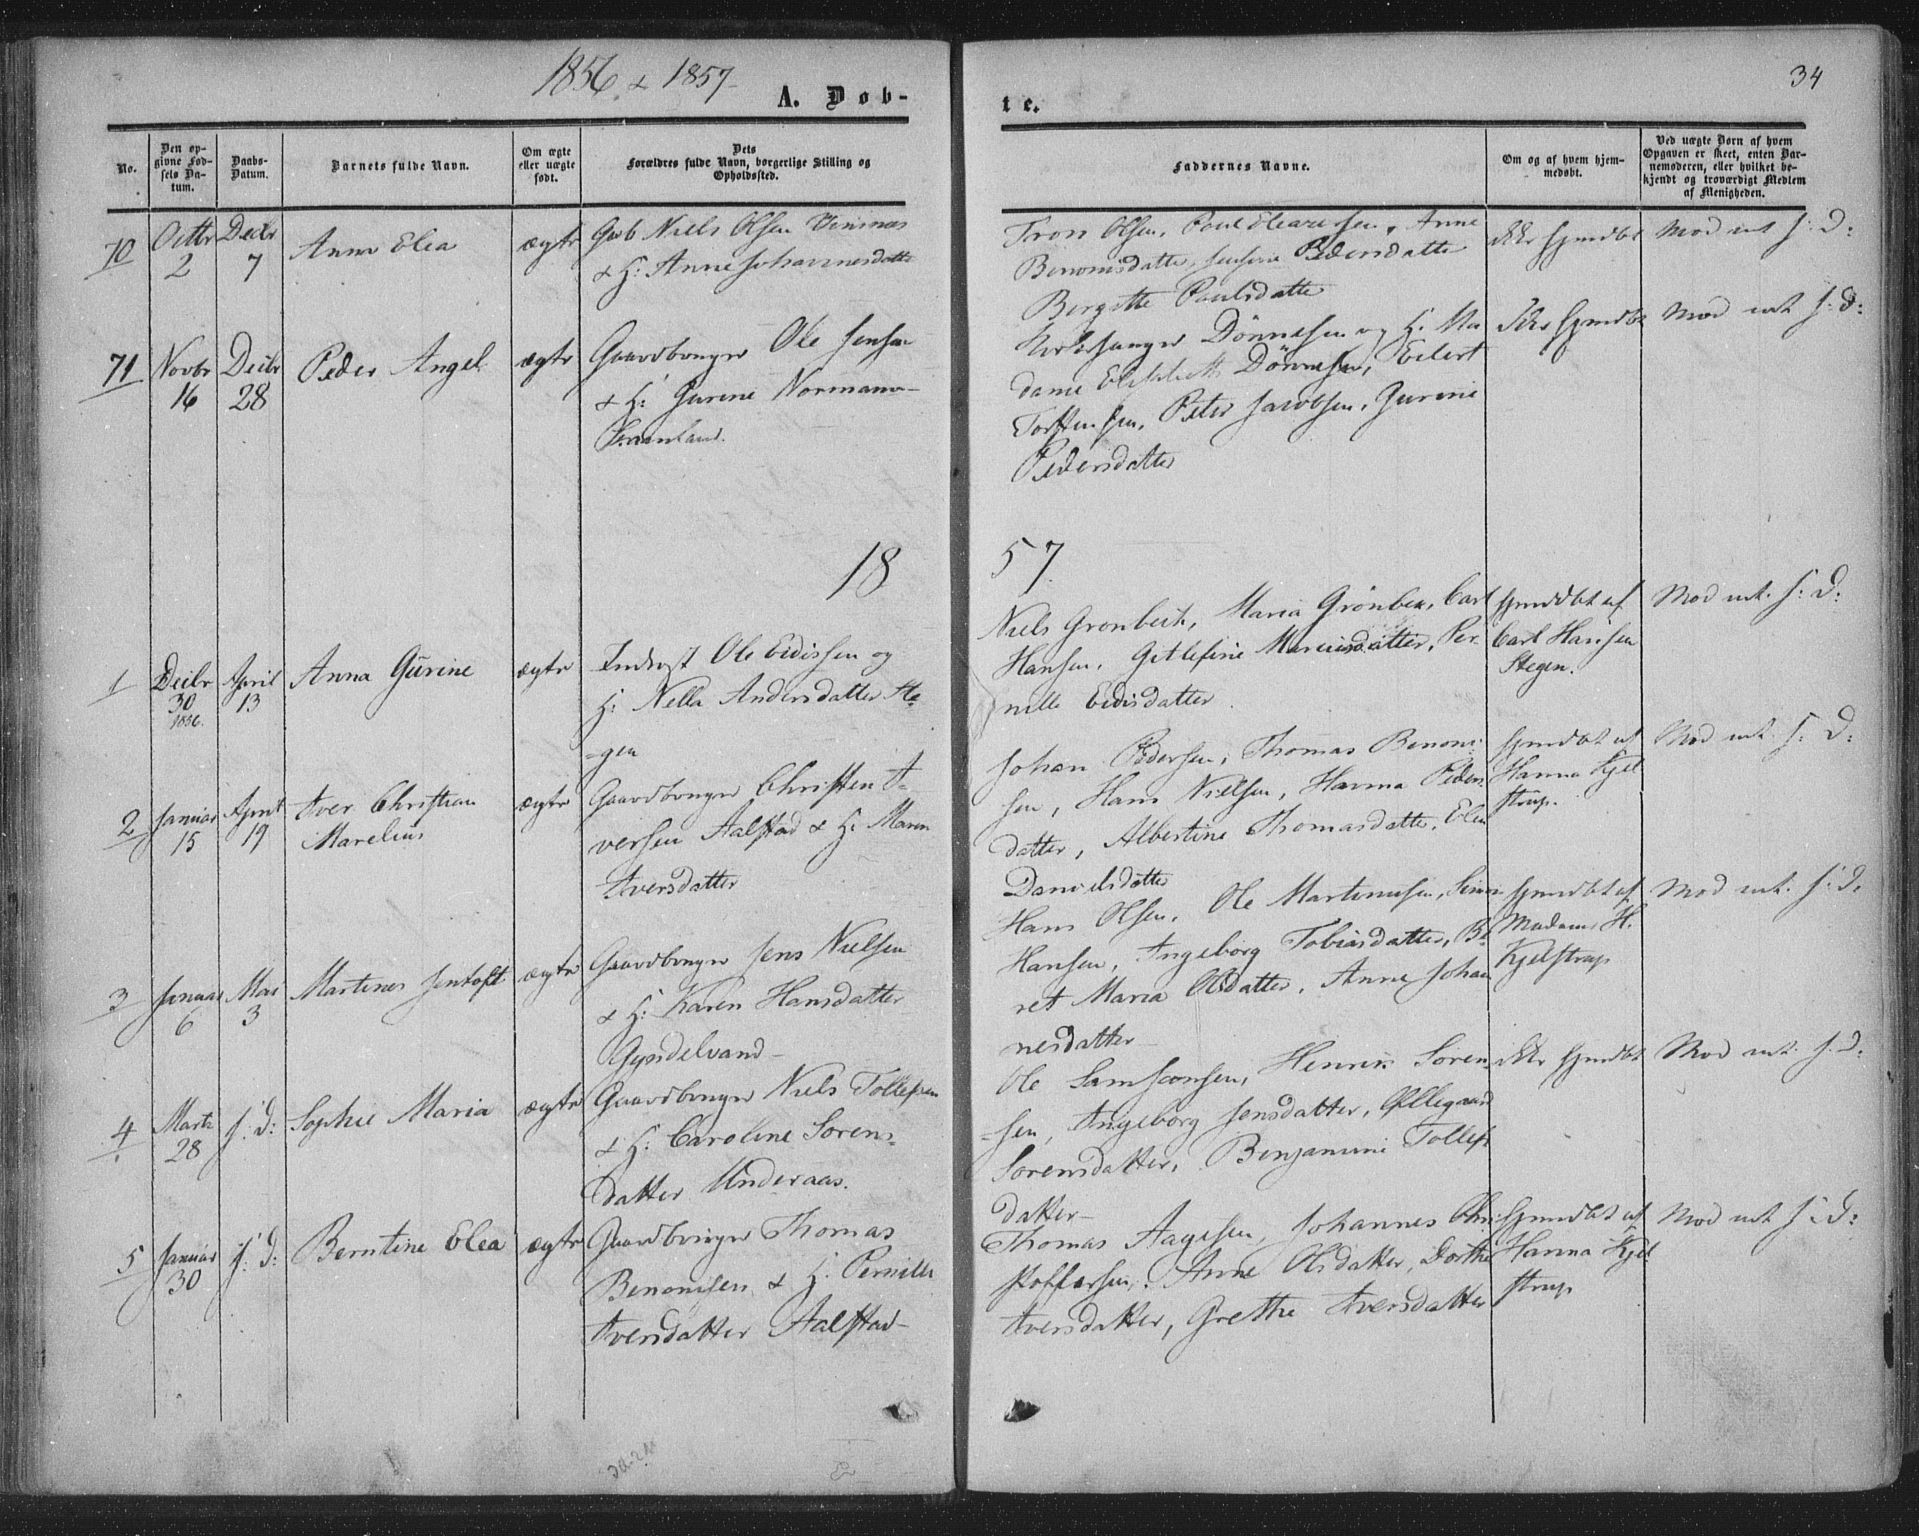 1856 & 1857
A. Døb-
te.
34
No.
Den op-
givne Fød-
sels Da-
tum.
Daabs-
Datum.
Barnets fulde Navn.
Om ægte
eller uægte
født.
Dets
Forældres fulde Navn, borgerlige Stilling og
Opholdssted.
Faddernes Navne.
Om og af hvem hjem-
medøbt.
Ved uægte Børn af hvem
Opgaven er skeet, enten Bar-
nemoderen, eller hvilket be-
kjendt og troværdigt Medlem
af Menigheden.
70
Octbr
2
Decbr
7
Anna Elea
ægte
Gmb Niels Olsen
& H: Anne Johannesdatter
Tron Olsen, Paul Eleazersen, Anne
Benonisdatter, Pedersdatter
Bergitte Paulsdatter
ikke hjmdbt
Mod int f: D:
71
Novbr
16
Decbr
28
Peder Angel
ægte
Gaardbruger Ole Jensen
& H: Gurine Normann
Kirkesanger Dønnesen og H: Ma
dame Elisabeth Dønnesen, Eilert
Torstensen, Peter Jacobsen, Gurine
Pedersdatter
Ikke hjmdbt
Mod int f: D:
18
57
1
Decbr
30
1856.
April
13
Anna Gurine
ægte
Inderst Ole Eidissen og
H: Nella Andersdatter Ste
-gen
Niels Grønbech, Maria Grønbec, Carl
Hansen, Gitlefine Marcusdatter, Per-
nille Eidisdatter
hjmdbt af
Carl Hansen
Stegen.
Mod int. f: D:
2
Januar
15
April
19
Iver Christian
Marelius
ægte
Gaardbruger Christen I-
versen Aalstad & H: Maren
Iversdatter
Johan Pedersen, Thomas Benoni
sen, Hans Nielsen, Hanna Peders
datter, Albertine Thomasdatter, Elen
Danielsdatter
hjmdbt af
Hanna Kjel
strup.
Mod int. f: D:
3
Januar
6
Mai
3
Martines Jentoft
ægte
Gaardbruger Jens Nielsen
& H: Karen Hansdatter
Gyndelvand
Hans Olsen, Ole Martinusen, Simon
Hansen, Ingeborg Tobiasdatter, Be
ret Maria Olsdatter, Anne Johan
nesdatter
hjmdbt af
Madam H.
Kjelstrup
Mod int. f: D.
4
Marts
28
f: D:
Sophie Maria
ægte
Gaardbruger Niels Tollefsen
& H: Caroline Sørens-
datter Underaas.
Ole Samsonsen, Henrik Søren
-sen, Ingeborg Jensdatter, Ollegaard
Sørensdatter, Benjamine Tollefs
datter
ikke hjmdbt
Mod int. f: D:
5
Januar
30
f: D:
Berntine Elea
ægte
Gaardbruger Thomas
Benonisen & H: Pernille
Iversdatter Aalstad
Thomas Aagesen, Johannes Chri
stoffersen, Anne Olsdatter, Dorthe
Iversdatter, Grethe Iversdatter
hjmdbt af
Hanna Kjel
strup
Mod int f: D: